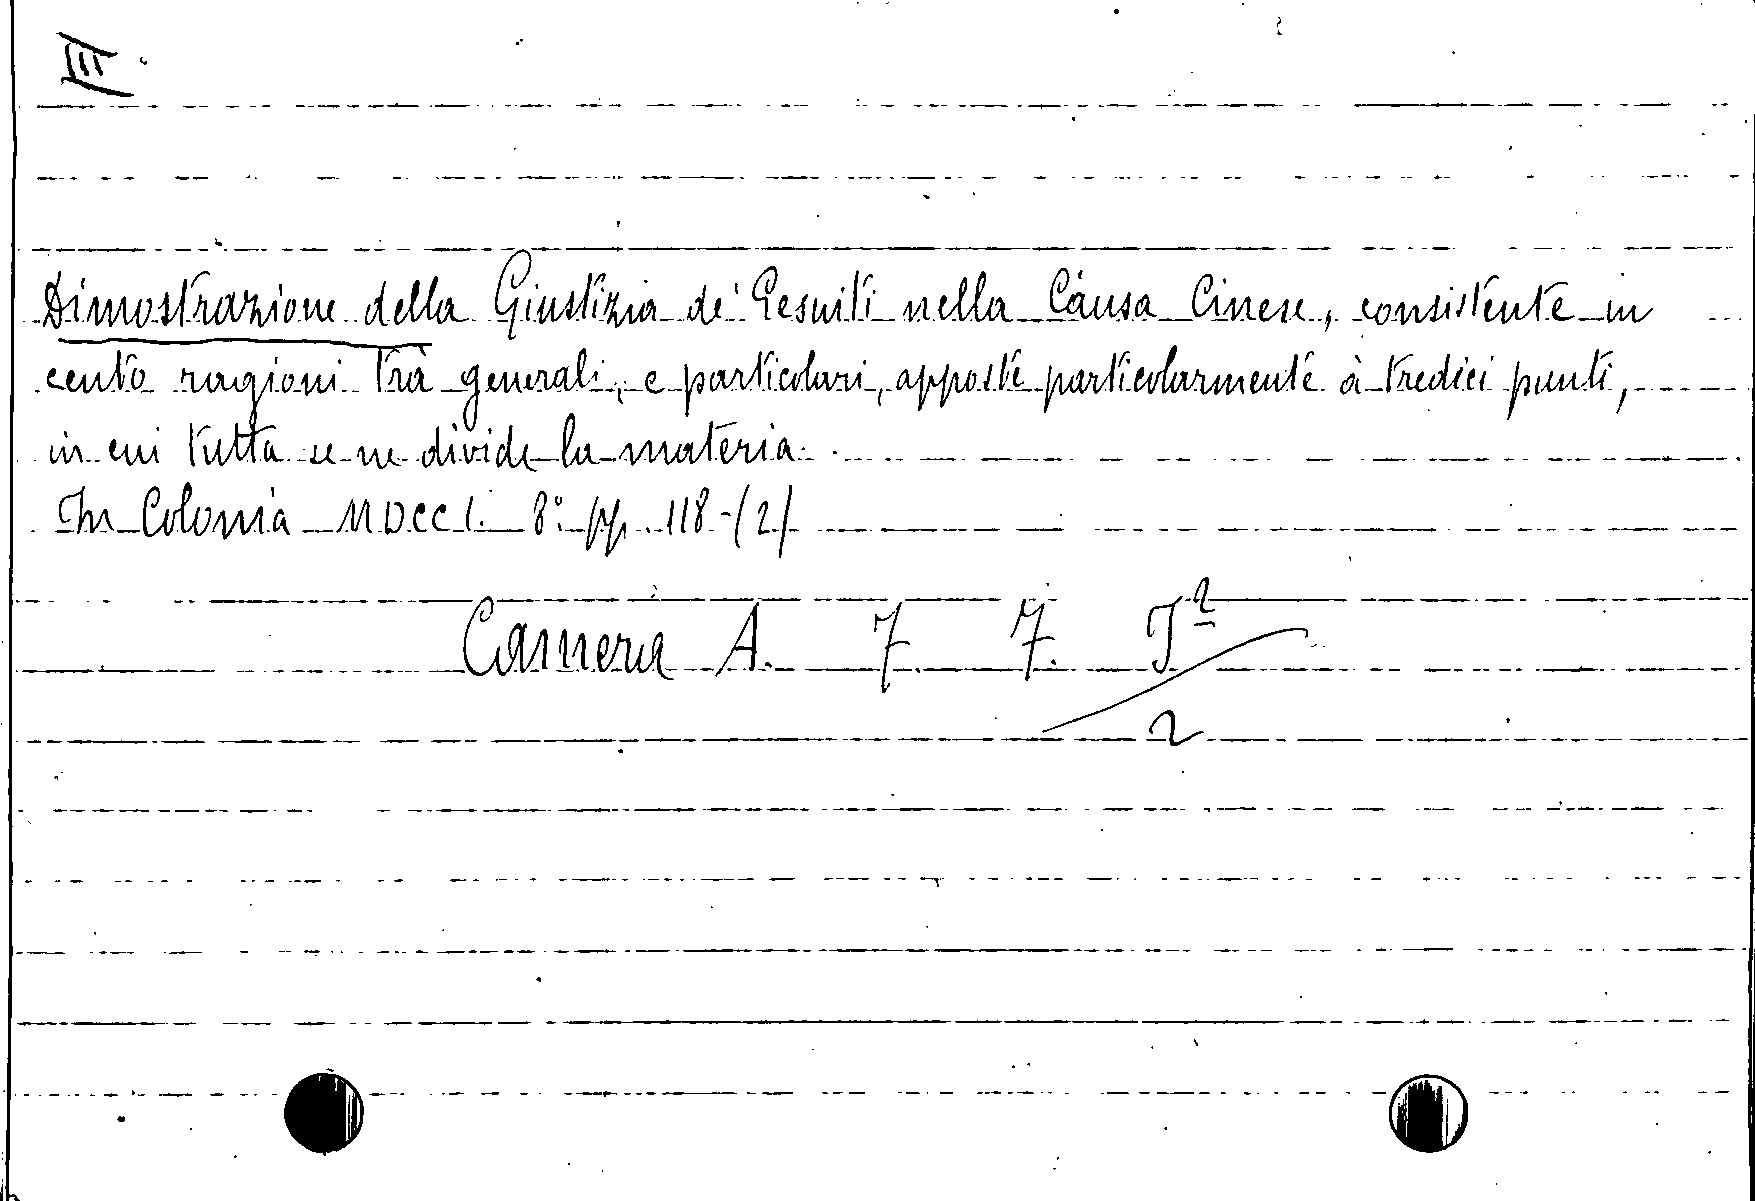 III
Dimostrazione della Giustizia de' Gesuiti nella Causa Cinese, consistente in
cento ragioni trà generali, e particolari, apposte particolarmente à tredici punti,
in cui tutta se ne divide la materia.
In Colonia MDCCI. 8° pp. 118-(2)
Camera A. 7. 7. J²
2